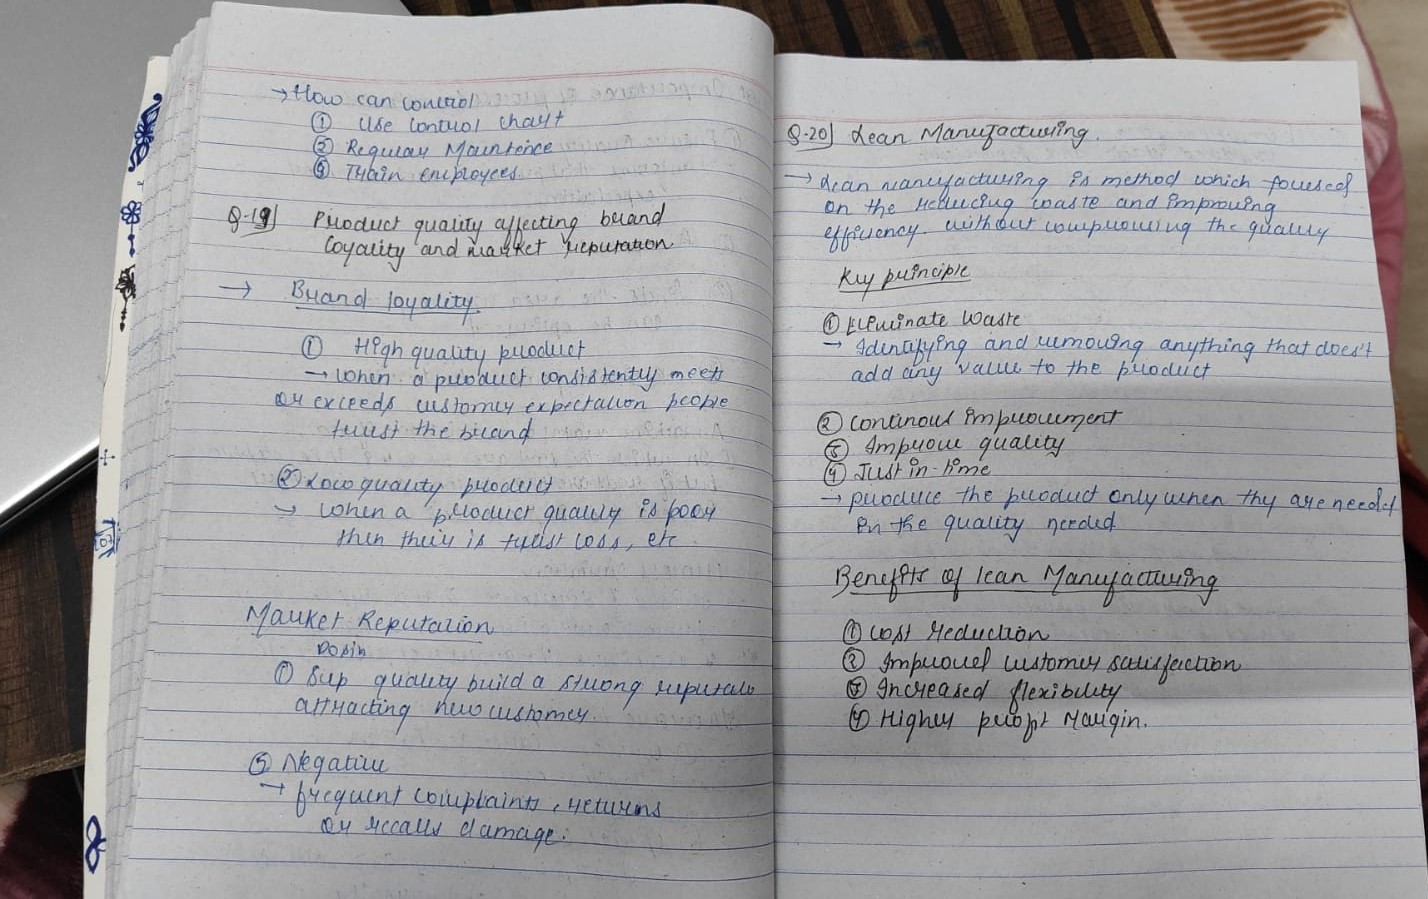 → How can control
① Use Control chart
② Regular Maintence
③ Train employees.
Q-19] Product quality affecting brand
loyality and market reputation
→ Brand loyality
① High quality product
→ when a product consistently meets
or exceeds customer expectation people
trust the brand
② Low quality product
→ when a product quality is poor
then their is trust loss, etc
Market Reputation
① Sup quality build a strong
attracting new customer.
Negative
→ frequent complaints, returns
or recalls damage.
Q-20] Lean Manufacturing.
→ Lean manufacturing is method which focused
on the reducing waste and improving
efficency without compromising the quality
Key principle
① Eliminate Waste
→ Identifying and removing anything that does't
add any value to the product
② continous improvement
③ Improve quality
④ Just in-time
→ produce the product only when thy are needed
in the quality needed
Benefits of lean Manufacturing
① cost reduction
② Improved customer satisfaction
③ Increased flexibility
④ Higher profit Margin.